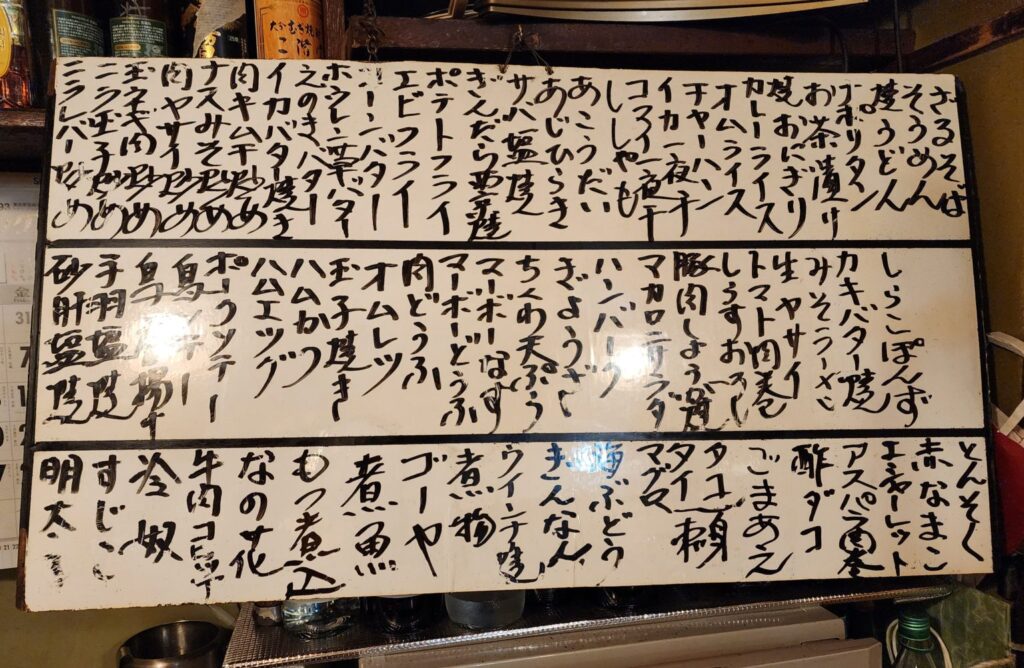 ざるそば
そうめん
焼うどん
ナポリタン
お茶漬け
焼おにぎり
カレーライス
オムライス
チャーハン
イカ一夜干
コマイ一夜干
ししゃも
あこうだい
あじひらき
サバ塩焼
ぎんだら西京焼
ポテトフライ
エビフライ
ベーコンバター
ホウレン草バター
えのきバター
イカバター焼き
肉キムチ炒め
ナスみそ炒め
肉ヤサイ炒め
玉ネギ肉炒め
ニラ玉子炒め
ニラレバー炒め
しらこぽんず
カキバター焼
みそラーメン
生ヤサイ
トマト肉巻
しらすおろし
豚肉しょうが焼
マカロニサラダ
ハンバーグ
ぎょうざ
ちくわ天ぷら
マーボーなす
マーボーどうふ
肉どうふ
オムレツ
玉子焼き
ハムカツ
ハムエッグ
ポークソテー
鳥ソテー
鳥唐揚げ
手羽塩焼
砂肝塩焼
とんそく
赤なまこ
エシャーレット
アスパラ肉巻
酢ダコ
ごまあえ
タコ刺身
タイ刺
マグロ
海ぶどう
ぎんなん
ウインナ焼
煮物
ゴーヤ
煮魚
もつ煮込
なの花
牛肉コロッケ
冷奴
すじこ
明太子